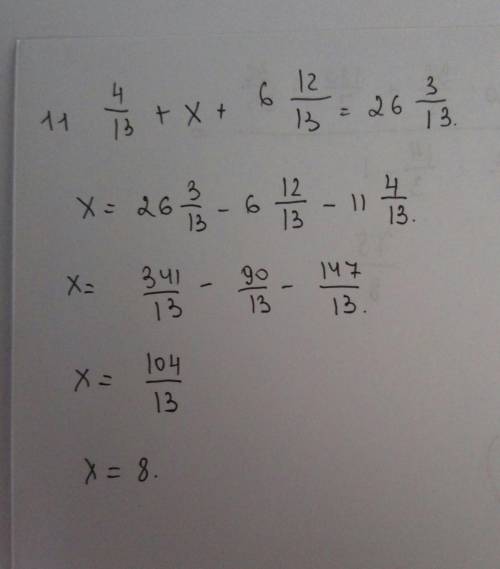 11 4/13 + x + 6 12/13 = 26 3/13.
x = 26 3/13 - 6 12/13 - 11 4/13.
x = 341/13 - 90/13 - 147/13.
x = 104/13
x = 8.